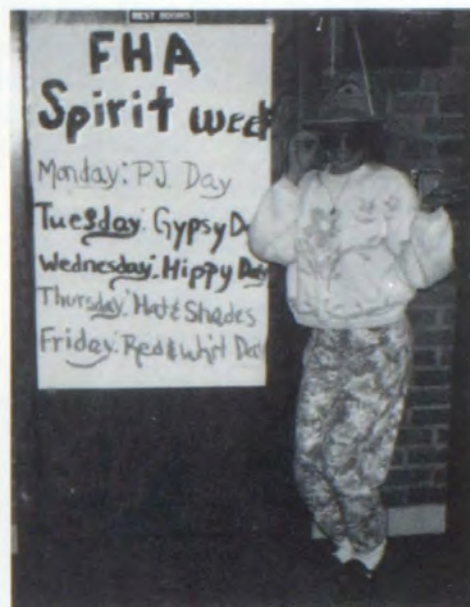 REST ROOMS
FHA
Spirit week
Monday: P.J. Day
Tuesday: Gypsy D
Wednesday: Hippy Day
Thursday: Hat & Shades
Friday: Red & Whit Day